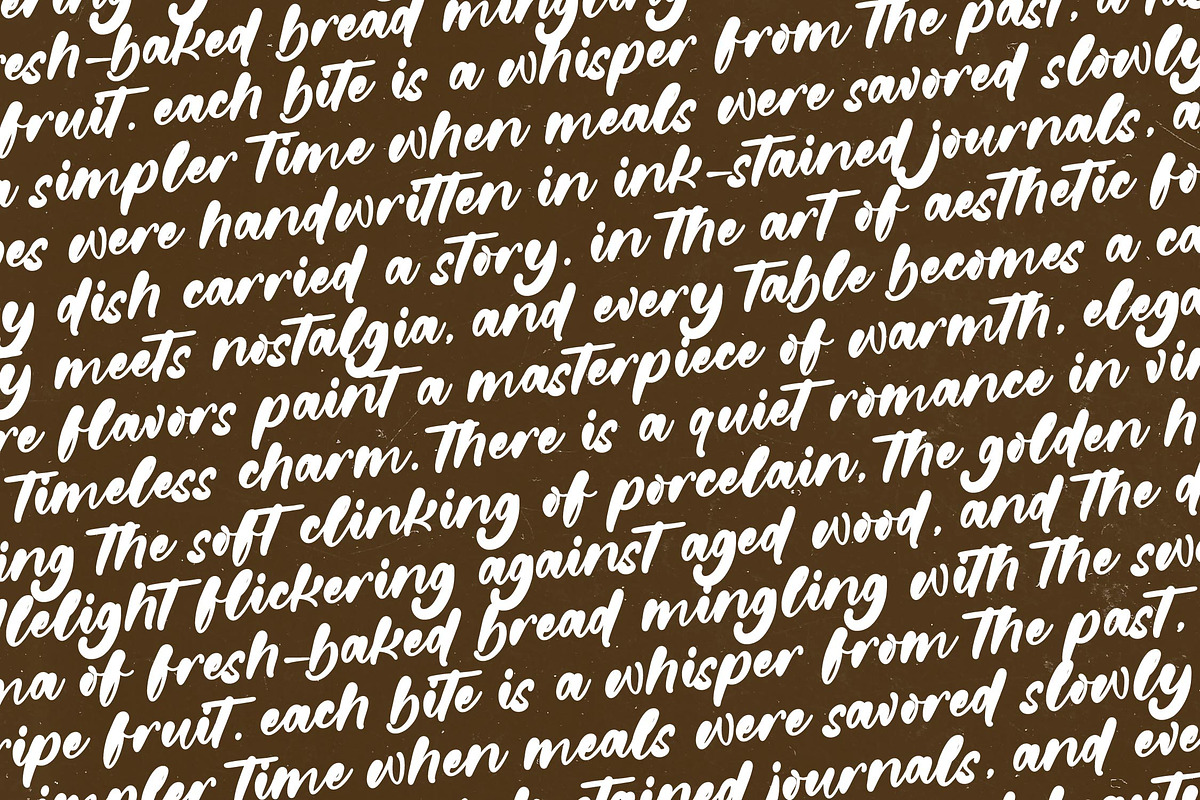 bread mingling
resh-baked bread mingling
fruit. each bite is a whisper from the past, a
a simpler time when meals were savored slowly
pes were handwritten in ink-stained journals, a
y dish carried a story. in the art of aesthetic fo
y meets nostalgia, and every table becomes a ca
re flavors paint a masterpiece of warmth, elega
timeless charm. there is a quiet romance in vin
ing the soft clinking of porcelain, the golden h
llelight flickering against aged wood, and the d
ma of fresh-baked bread mingling with the sw
ripe fruit. each bite is a whisper from the past,
impler time when meals were savored slowly
tained journals, and eve